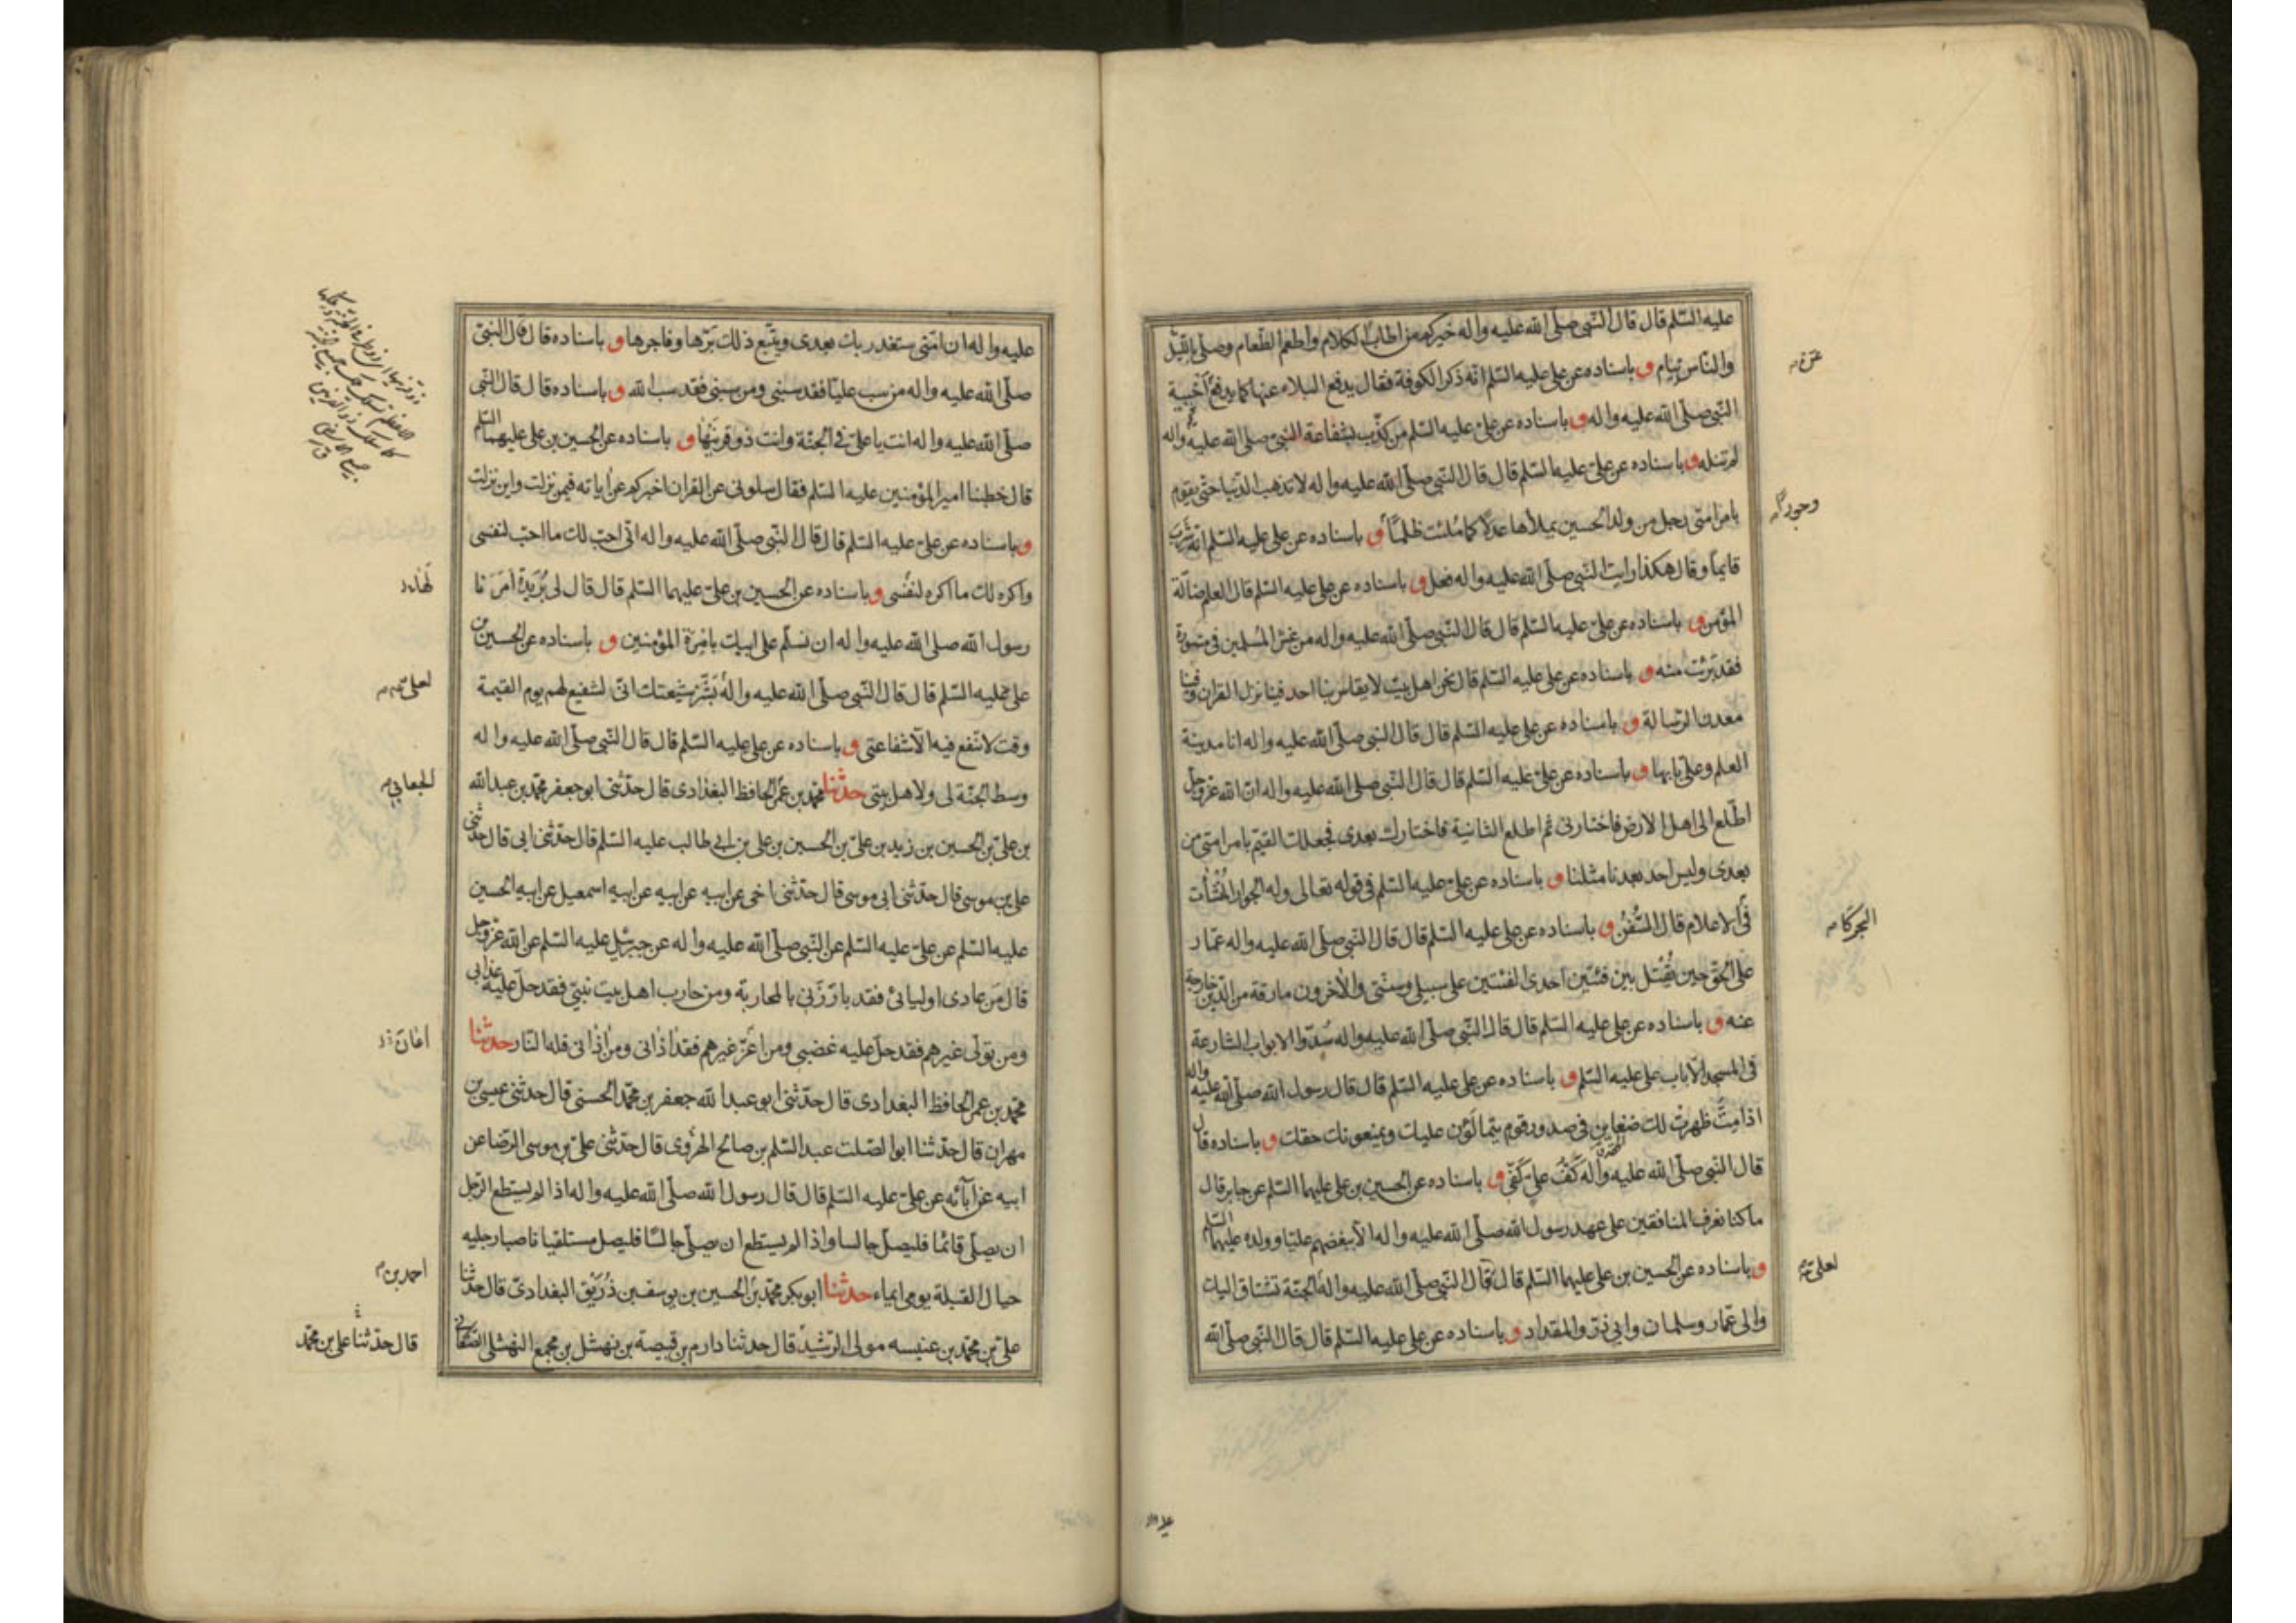 عليه السّلم قال قال النّبي صلّى الله عليه واله خيركم من اطاب الكلام واطعم الطّعام وصلّى باللّيل
والنّاس نيام و باسناده عن علي عليه السّلم انّه ذكر الكوفة فقال يدفع البلاء عنها كما يدفع اخبية
النّبي صلّى الله عليه واله و باسناده عن عليّ عليه السّلم من كذّب بشفاعة النّبيّ صلّى الله عليه واله
لم تنله و باسناده عن عليّ عليه السّلم قال قال النّبي صلّى الله عليه واله لا تذهب الدّنيا حتّى يقوم
بامر امتى رجل من ولد الحسين يملأها عدلا كما ملئت ظلمًا و باسناده عن علي عليه السّلم انّه شرب
قايماً وقال هكذا رايت النّبي صلّى الله عليه واله فعل و باسناده عن علي عليه السّلم قال العلم ضالّة
المؤمن و باسناده عن عليّ عليه السّلم قال قال النّبي صلّى الله عليه واله من غش المسلمين في مشورة
فقد برئت منه و باسناده عن علي عليه السّلم قال نحن اهل بيت لا يقاس بنا احد فينا نزل القران وفينا
معدن الرّسالة و باسناده عن علي عليه السّلم قال قال النّبي صلّى الله عليه واله انا مدينة
العلم وعليّ بابها و باسناده عن عليّ عليه السّلم قال قال النّبي صلّى الله عليه واله انّ الله عزّ وجلّ
اطّلع الى اهل الارض فاختارنى ثم اطلع الثّانية فاختارك بعدى فجعلك القيّم بامر امتى من
بعدى وليس احد بعدنا مثلنا و باسناده عن عليّ عليه السّلم في قوله تعالى وله الجوار المنشأت
في الاعلام قال السّفن و باسناده عن علي عليه السّلم قال قال النّبي صلّى الله عليه واله عمّار
على الحقّ حين يقتل بين فئتين احدى الفئتين على سبيلي وسنّتي والاخرون مارقة من الدّين خارجة
عنه و باسناده عن علي عليه السّلم قال قال النّبي صلّى الله عليه واله سدّوا الابواب الشارعة
في المسجد الّا باب علي عليه السّلم و باسناده عن علي عليه السّلم قال قال رسول الله صلّى الله عليه واله
اذا متّ ظهرت لك ضغاين في صدور قوم يتمالؤن عليك ويمنعونك حقك و باسناده قال
قال النّبي صلّى الله عليه واله كفّ عليّ كفّي و باسناده عن الحسين بن علي عليهما السّلم عن جابر قال
ما كنا نعرف المنافقين على عهد رسول الله صلّى الله عليه واله الّا ببغضهم عليّا وولده عليهم السّلم
و باسناده عن الحسين بن علي عليهما السّلم قال قال النّبي صلّى الله عليه واله الجنّة تشتاق اليك
والى عمّار وسلمان وابي ذرّ والمقداد و باسناده عن علي عليه السّلم قال قال النّبي صلّى الله
البحر كا
لعلي
عليه واله ان امّتى ستغدر بك بعدى ويتّبع ذلك برّها وفاجرها و باسناده قال قال النّبيّ
صلّى الله عليه واله من سب عليّا فقد سبنى ومن سبنى فقد سب الله و باسناده قال قال النّبي
صلّى الله عليه واله انت يا عليّ في الجنّة وانت ذو قرنيها و باسناده عن الحسين بن علي عليهما السّلم
قال خطبنا امير المؤمنين عليه السّلم فقال سلونى عن القران اخبركم عن اياته فيمن نزلت واين نزلت
و باسناده عن عليّ عليه السّلم قال قال النّبي صلّى الله عليه واله انّى احبّ لك ما احبّ لنفسى
واكره لك ما اكره لنفسى و باسناده عن الحسين بن عليّ عليهما السّلم قال قال لى بريدة امرنا
رسول الله صلى الله عليه واله ان نسلّم على ابيك بامرة المؤمنين و باسناده عن الحسين بن
علي عليه السّلم قال قال النّبي صلّى الله عليه واله بشّر شيعتك انّى الشفيع لهم يوم القيمة
وقت لا تنفع فيه الّا شفاعتى و باسناده عن علي عليه السّلم قال قال النّبي صلّى الله عليه واله
وسط الجنّة لى ولاهل بيتى حدثنا محمّد بن عمر الحافظ البغدادى قال حدّثنى ابو جعفر محمّد بن عبد الله
بن عليّ بن الحسين بن زيد بن عليّ بن الحسين بن علي بن ابي طالب عليه السّلم قال حدّثنى ابى قال حدّثنى
علي بن موسى قال حدّثنى ابى موسى قال حدّثنى اخى عن ابيه عن ابيه عن ابيه اسمعيل عن ابيه الحسين
عليه السّلم عن عليّ عليه السّلم عن النّبي صلّى الله عليه واله عن جبرئيل عليه السّلم عن الله عزّ وجلّ
قال من عادى اوليائى فقد بارزنى بالمحاربة ومن حارب اهل بيت نبيّى فقد حلّ عليه عذابى
ومن تولّى غيرهم فقد حلّ عليه غضبى ومن اعزّ غيرهم فقد اذانى ومن اذانى فله النّار حدثنا
محمّد بن عمر الحافظ البغدادى قال حدّثنى ابو عبد الله جعفر بن محمّد الحسنى قال حدثنى عيسى بن
مهران قال حدّثنا ابو الصّلت عبد السّلم بن صالح الهروى قال حدّثنى عليّ بن موسى الرّضا عن
ابيه عن آبائه عن عليّ عليه السّلم قال قال رسول الله صلّى الله عليه واله اذا لم يستطع الرّجل
ان يصلّى قائما فليصلّ جالسا واذا لم يستطع ان يصلّى جالسًا فليصل مستلقيا ناصبا رجليه
حيال القبلة يومى ايماء حدثنا ابو بكر محمّد بن الحسين بن يوسف بن ذريق البغدادىّ قال حدّثنا
عليّ بن محمّد بن عنبسه مولى الرّشيد قال حدثنا دارم بن قبيصة بن نهشل بن مجمع النّهشلي الصّنعاني
لعلي
الجعابي
احمد بن
قال حدّثنا علي بن محمّد